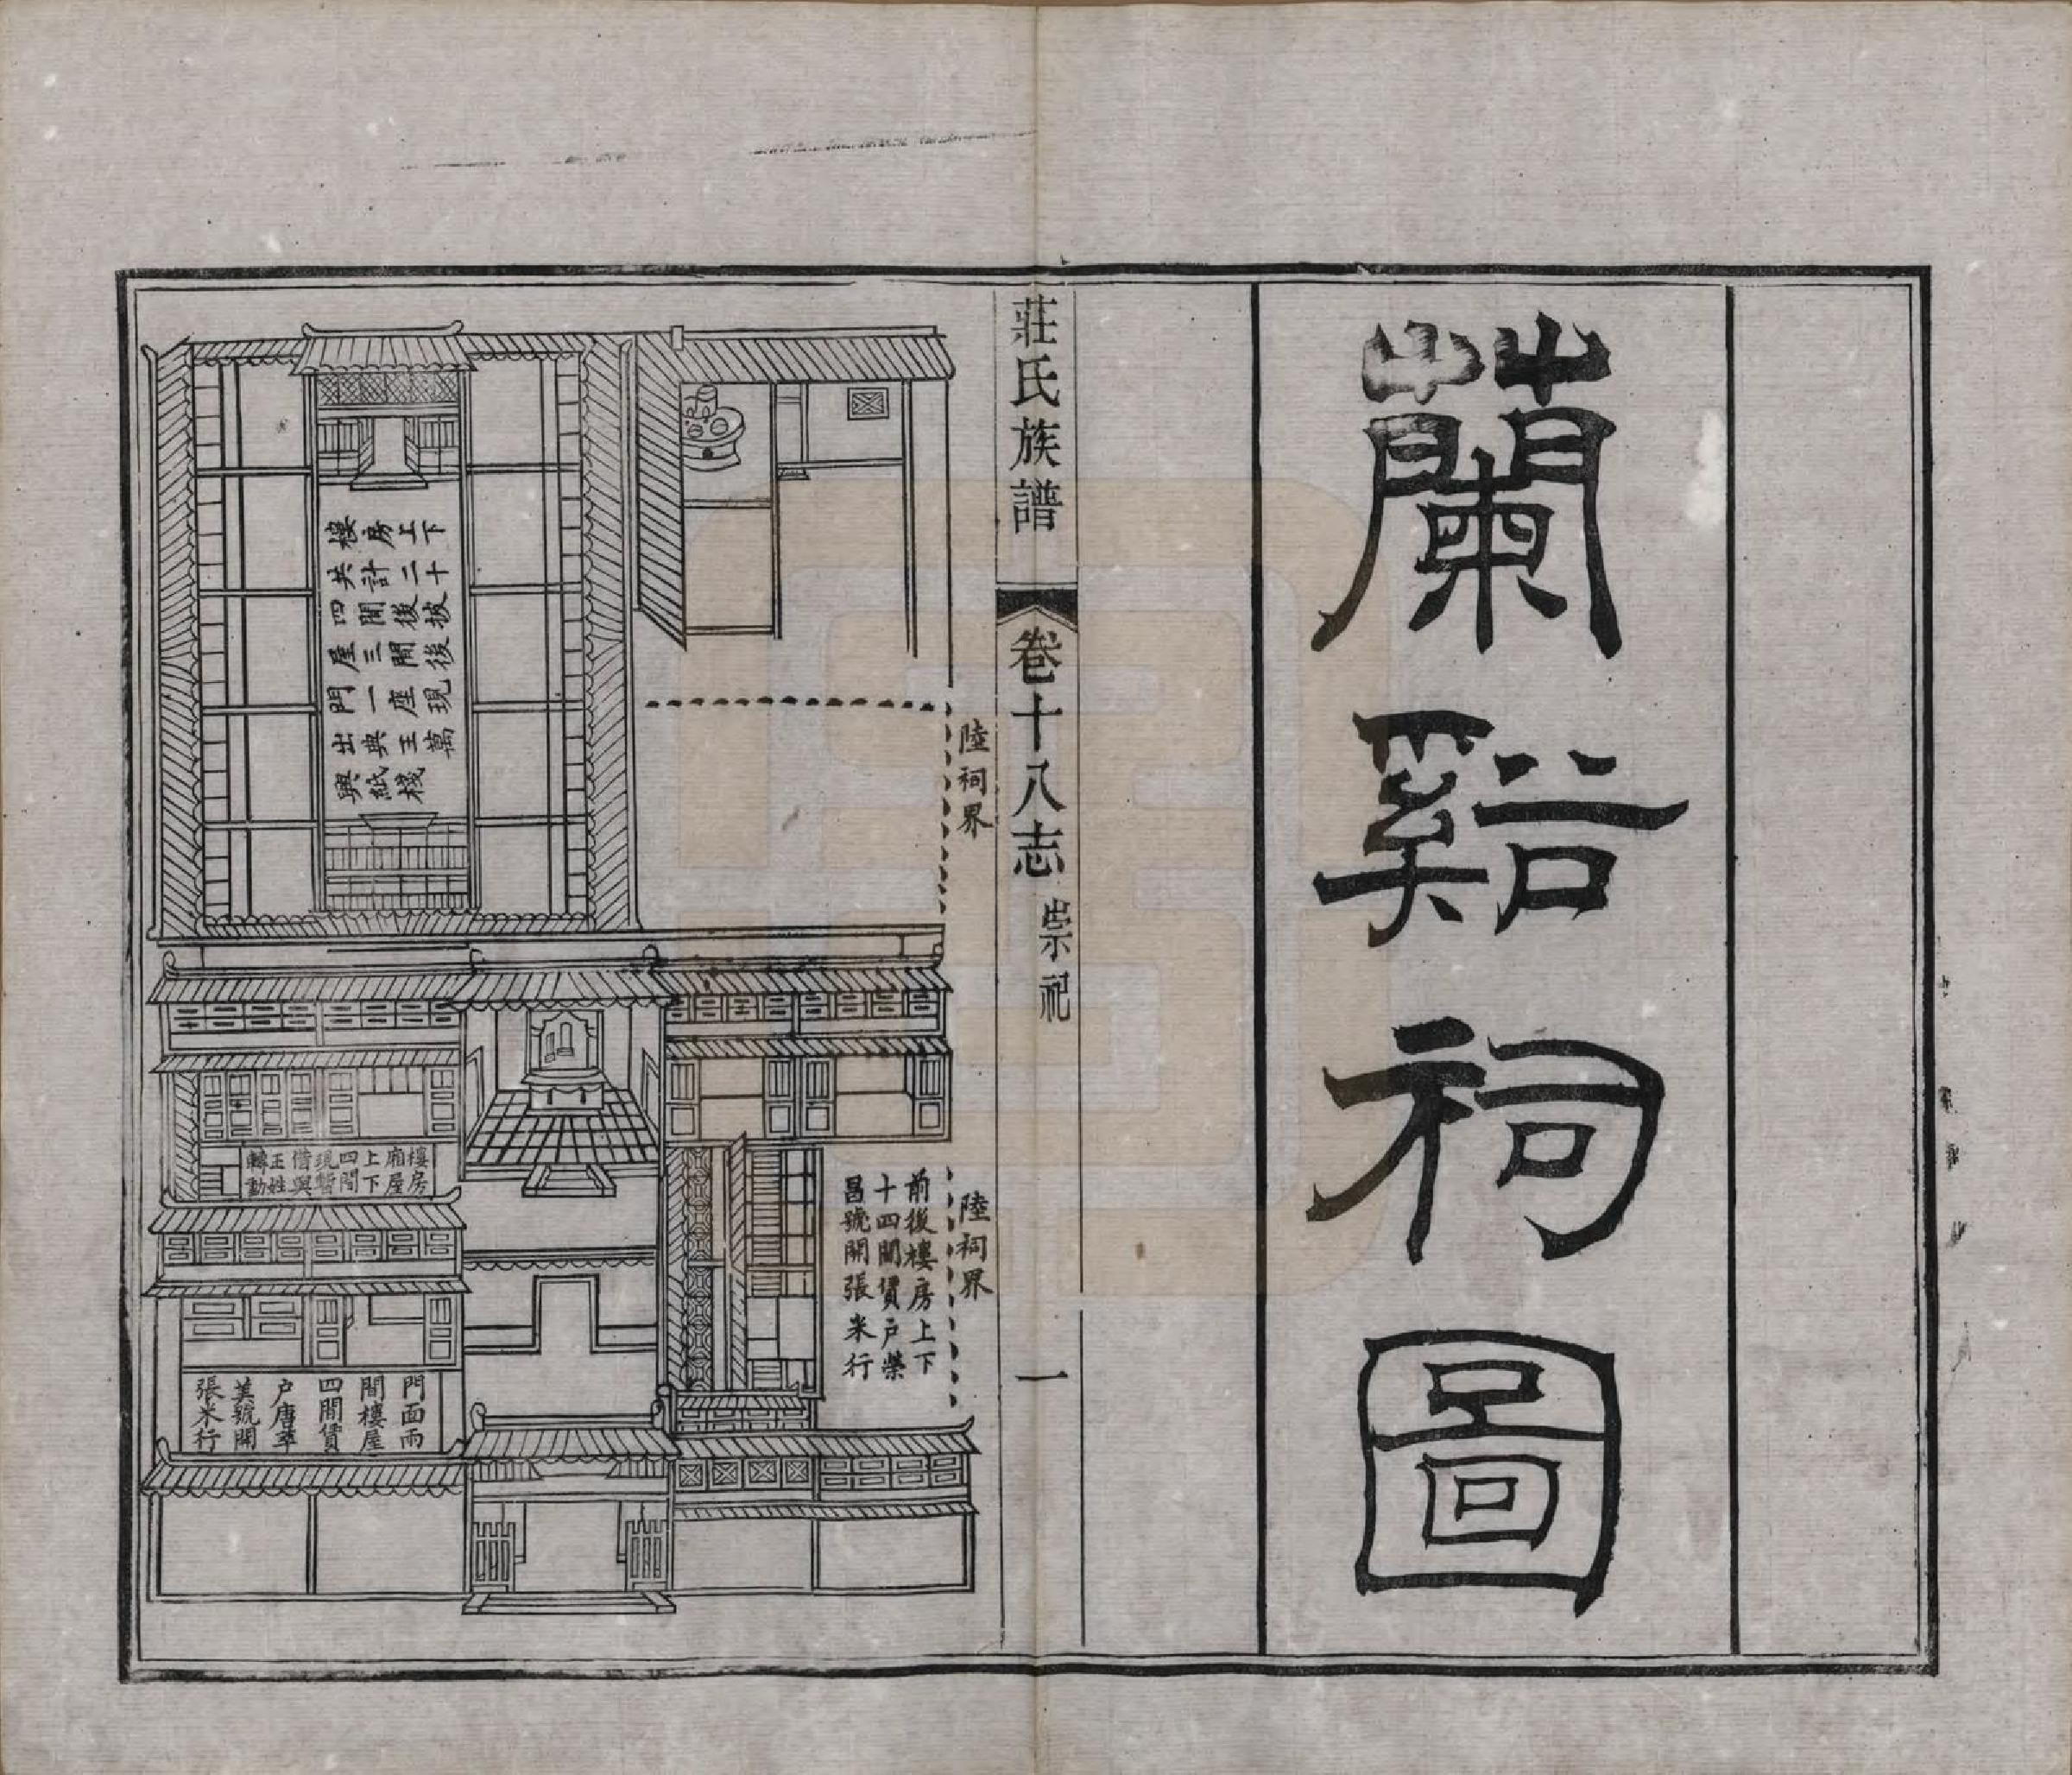 蘭谿祠圖
莊氏族譜
卷十八志
崇祀
一
陸祠界
樓房上下
共計二十
四間後披
屋三間後
門一座現
出典王萬
興紙棧
陸祠界
前後樓房上下
十四間賃户榮
昌號開張米行
樓房
廂屋
上下
四間
現暫
借與
王姓
轉動
門面兩
間樓屋
四間賃
户唐萃
美號開
張米行